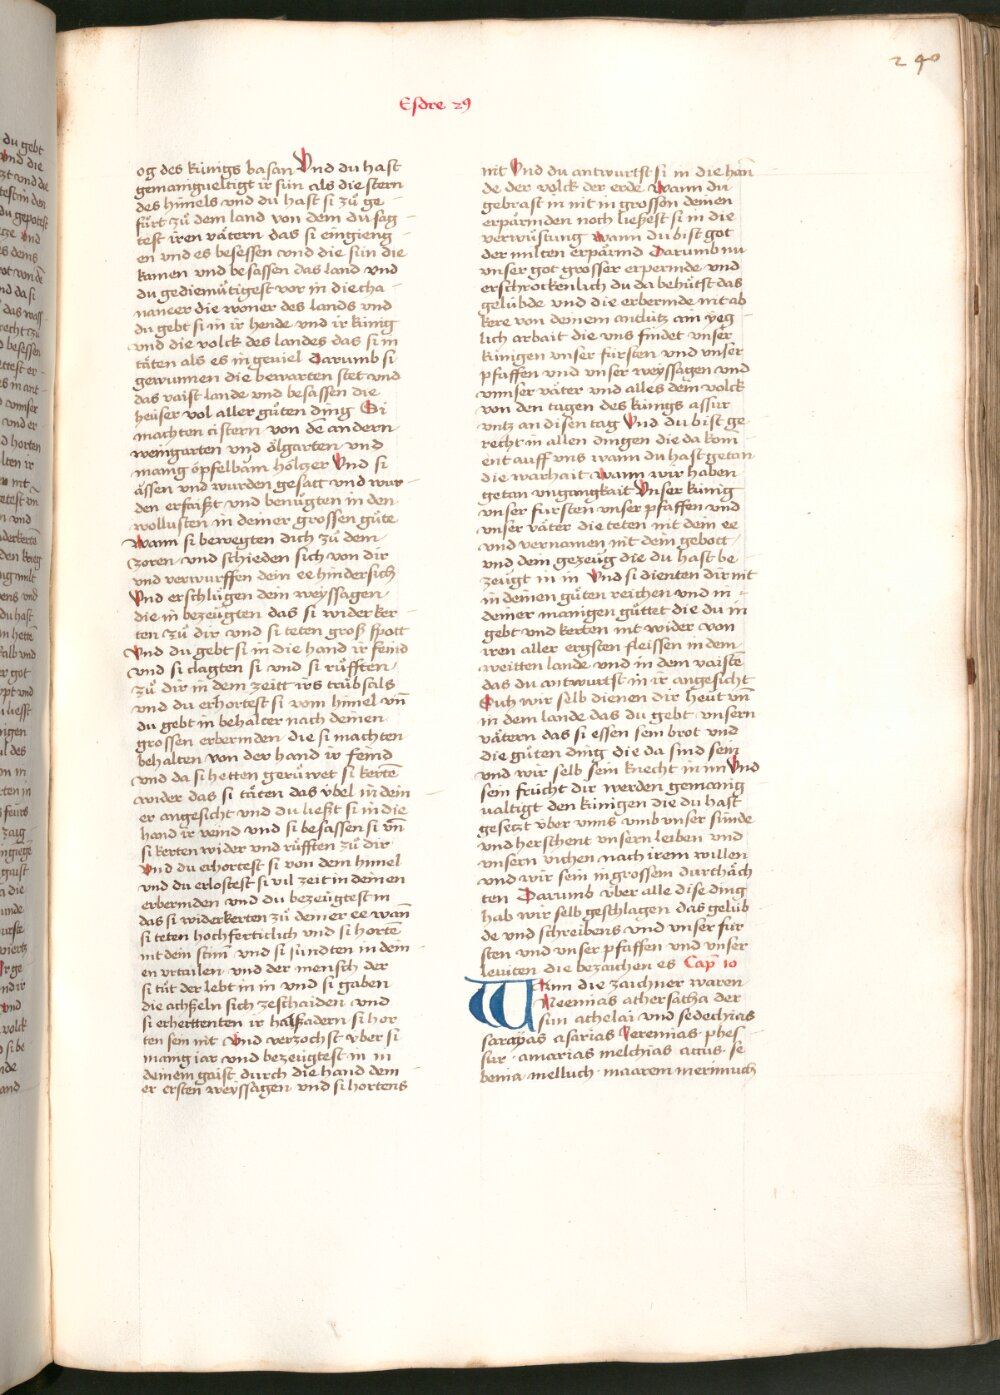 290
Esdre 29
og des künigs basan Vnd du hast
gemanigueltigt ir sün als die stern
des himels vnd du hast si zů ge-
fürt zů dem land von dem du sag-
test iren vätern das si eingieng-
en vnd es besessen vnd die sün die
kamen vnd besassen das land vnd
du gediemütigest vor in die cha-
naneer die woner des lands vnd
du gebt si in ir hende vnd ir künig
vnd die volck des landes das si in
täten als es in geuiel Darumb si
gewunnen die bewarten stet vnd
das vaist lande vnd besassen die
heüser vol aller gůten ding Si
machten cistern von de andern
weingarten vnd ölgarten vnd
manig öpfelbäm höltzer Vnd si
ässen vnd wurden gesatt vnd wur-
den erfaißt vnd benügten in den
wollusten in deiner grossen güte
Wann si bewegten dich zů dem
zoren vnd schieden sich von dir
vnd verwurffen dein ee hindersich
Vnd erschlügen dein weyssagen
die in bezeügten das si widerker-
ten zů dir vnd si teten groß spott
Vnd du gebt si in die hand ir feind
vnd si clagten si vnd si růfften
zů dir in dem zeitt irs trübsals
vnd du erhortest si vom himel vn̄
du gebt in behalter nach deinen
grossen erbermden die si machten
behalten von der hand ir feind
vnd da si hetten gerüwet si kertē
wider das si täten das vbel in dein-
er angesicht vnd du ließt si in die
hand ir veind vnd si besassen si vn̄
si kerten wider vnd růfften zů dir
Vnd du erhortest si von dem himel
vnd du erlostest si vil zeit in deinen
erbermden vnd du bezeügtest in
das si widerkerten zů deiner ee wan̄
si teten hochferticlich vnd si hortē
nit dein stim̄ vnd si sündten in dein-
en vrtailen vnd der mensch der
si tůt der lebt in in vnd si gaben
die achßeln sich zeschaiden vnd
si erherttenten ir halßadern si hor
ten sein nit Vnd verzochst vber si
manig iar vnd bezeügtest in in
deinem gaist durch die hand dein
er ersten weyssagen vnd si hortens
nit Vnd du antwurtst si in die hän
de der völck der erde Wann du
gebrast in nit in grossen deinen
erpärmden noch ließest si in die
verwüstung Wann du bist got
der milten erpärmd Darumb nu
vnser got grosser erpermde vnd
erschrockenlich du da behütst das
gelübde vnd die erbermde nit ab
kere von deinem antlütz ain yeg
lich arbait die vns findet vnser
künigen vnser fürsten vnd vnser
pfaffen vnd vnser weyssagen vnd
vnnser väter vnd alles dein volck
von den tagen des künigs assur
vntz an disen tag Vnd du bist ge
recht in allen dingen die da kom
ent auff vns wann du hast getan
die warhait Wann wir haben
getan vngangkait Vnser künig
vnser fürsten vnser pfaffen vnd
vnser väter die teten nit dein ee
vnd vernamen nit dein gebott
vnd dein gezeüg die du hast be-
zeügt in in Vnd si dienten dir nit
in deinen güten reichen vnd in
deiner manigen güttet die du in
gebt vnd kerten nit wider von
iren aller ergsten fleissen in dem
weitten lande vnd in dem vaistē
das du antwurtst in ir angesicht
Sich wir selb dienen dir heut vn̄
in dem lande das du gebt vnsern
vätern das si essen sein brot vnd
die güten ding die da sind sein
vnd wir selb sein knecht in im Vnd
sein frücht dir werden gemanig
ualtigt den künigen die du hast
gesetzt vber vnns vmb vnser sünde
vnd herschent vnsern leiben vnd
vnsern vichen nach irem willen
vnd wir sein in grossem durchäch
ten Darumb vber alle dise ding
hab wir selb geschlagen das gelüb
de vnd schreibens vnd vnser für
sten vnd vnser pfaffen vnd vnser
leuiten die bezaichen es Cap̄ 10
Wann die zaichner waren
Neemias athersatha der
sun athelai vnd sedechias
sarayas asarias Jeremias phes
sur · amarias melchias accus · se
benia · melluch · maarem merimuch